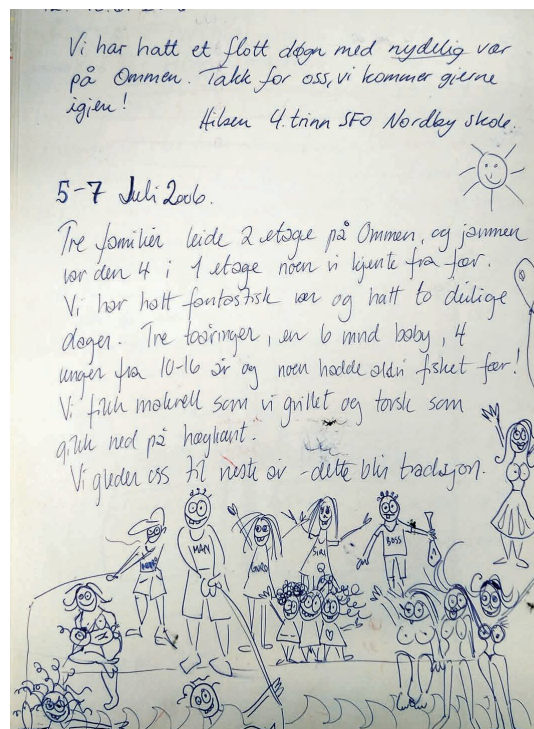 Vi har hatt et flott døgn med nydelig vær
på Ommen. Takk for oss, vi kommer gjerne
igjen!
Hilsen 4. trinn SFO Nordby skole.
5-7 Juli 2006.
Tre familier leide 2 etage på Ommen, og jammen
var den 4 i 1 etage noen vi kjente fra før.
Vi har hatt fantastisk vær og hatt to deilige
dager. Tre toåringer, en 6 mnd baby, 4
unger fra 10-16 år og noen hadde aldri fisket før!
Vi fikk makrell som vi grillet og torsk som
gikk ned på høykant.
Vi gleder oss til neste år - dette blir tradisjon.
MAN
GURO
SIRI
BOSS